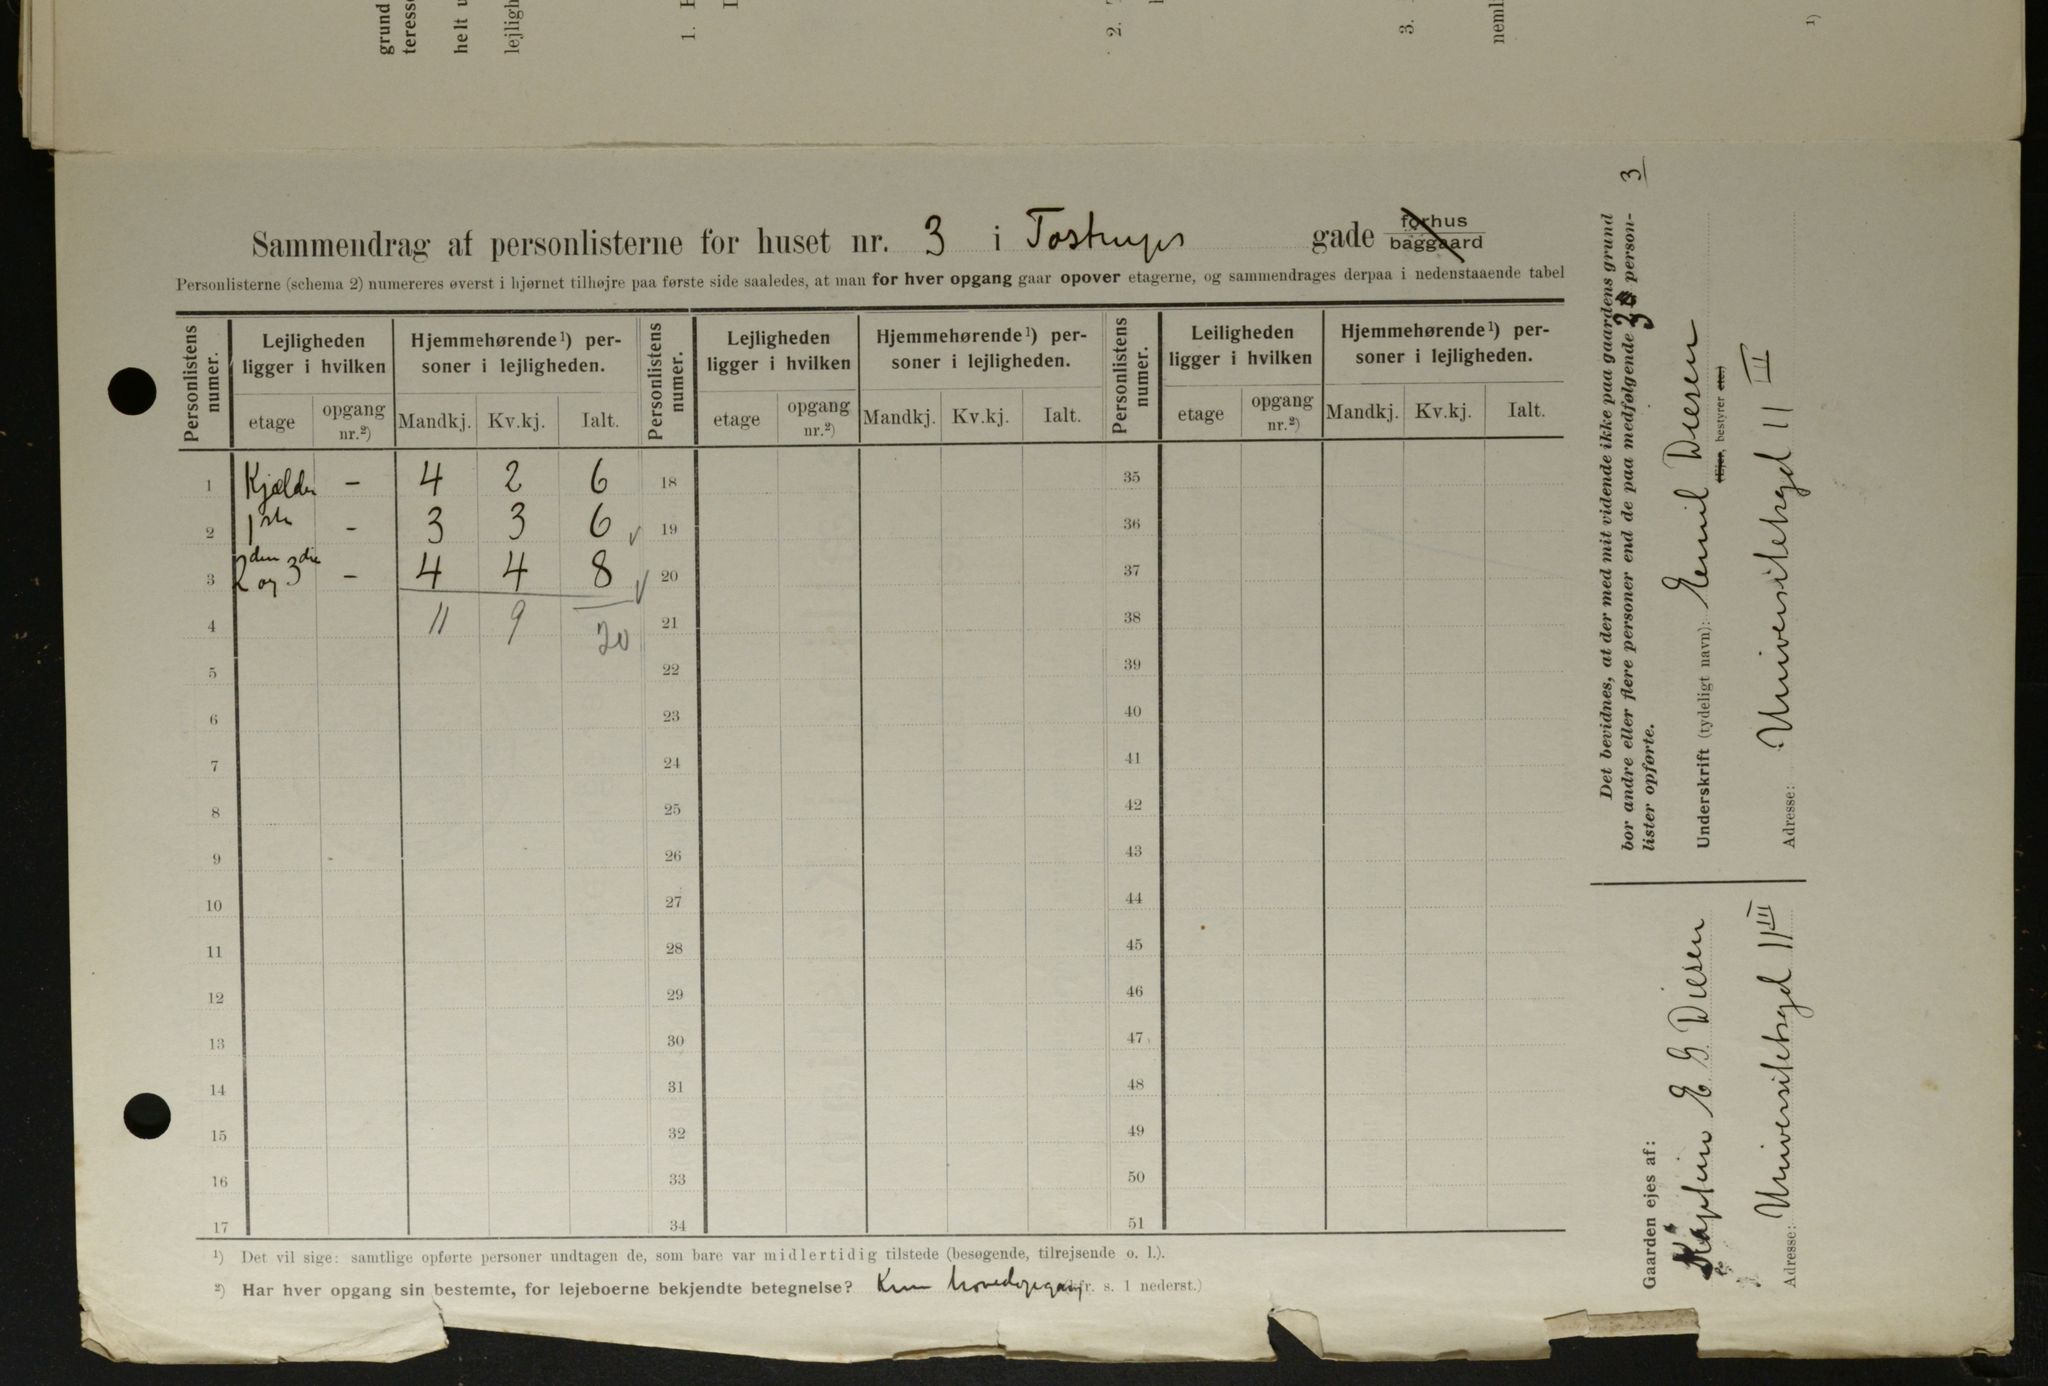 grund
teresse
helt u
lejligh
1.
2.
3.
neml
1)
Sammendrag af personlisterne for huset nr. 3 i Tostrups gade forhus baggaard
Personlisterne (schema 2) numereres øverst i hjørnet tilhøjre paa første side saaledes, at man for hver opgang gaar opover etagerne, og sammendrages derpaa i nedenstaaende tabel
Personlistens numer. Lejligheden ligger i hvilken Hjemmehørende¹) personer i lejligheden. Personlistens numer. Lejligheden ligger i hvilken Hjemmehørende¹) personer i lejligheden. Personlistens numer. Leiligheden ligger i hvilken Hjemmehørende¹) personer i lejligheden.
etage opgang nr.²) Mandkj. Kv.kj. Ialt. etage opgang nr.²) Mandkj. Kv.kj. Ialt. etage opgang nr.²) Mandkj. Kv.kj. Ialt.
1 Kjælder – 4 2 6 18 35
2 1ste – 3 3 6 19 36
3 2den og 3die – 4 4 8 20 37
4 11 9 20 21 38
5 22 39
6 23 40
7 24 41
8 25 42
9 26 43
10 27 44
11 28 45
12 29 46
13 30 47
14 31 48
15 32 49
16 33 50
17 34 51
¹) Det vil sige: samtlige opførte personer undtagen de, som bare var midlertidig tilstede (besøgende, tilrejsende o. l.).
²) Har hver opgang sin bestemte, for lejeboerne bekjendte betegnelse? Kun hovedopgang (jfr. s. 1 nederst.)
3
Det bevidnes, at der med mit vidende ikke paa gaardens grund
bor andre eller flere personer end de paa medfølgende 3 person-
lister opførte.
Underskrift (tydeligt navn): Emil Diesen
(Ejer, bestyrer etc.)
Adresse: Universitetsgd 11 III
Gaarden ejes af:
Kaptein E G Diesen
Adresse: Universitetsgd 11 III